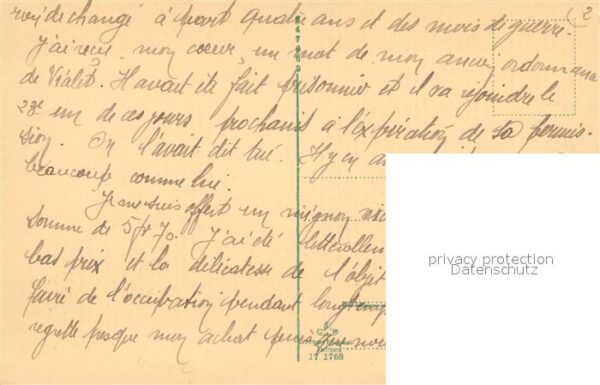 (2
rien de changé à part quatre ans et des mois de guerre.
J'ai reçu, mon coeur, un mot de mon ancien ordonnance
de Vialet. Il avait été fait prisonnier et il va rejoindre le
28e un de ces jours prochains à l'expiration de sa permis-
sion. On l'avait dit tué. Il y en a
beaucoup comme lui.
Je me suis offert un mignon
somme de 5 fr 70. J'ai été littérallem
bas prix et la délicatesse de l'objet
faire de l'occupation pendant longtemps
regrette presque mon achat
17 1768
privacy protection
Datenschutz